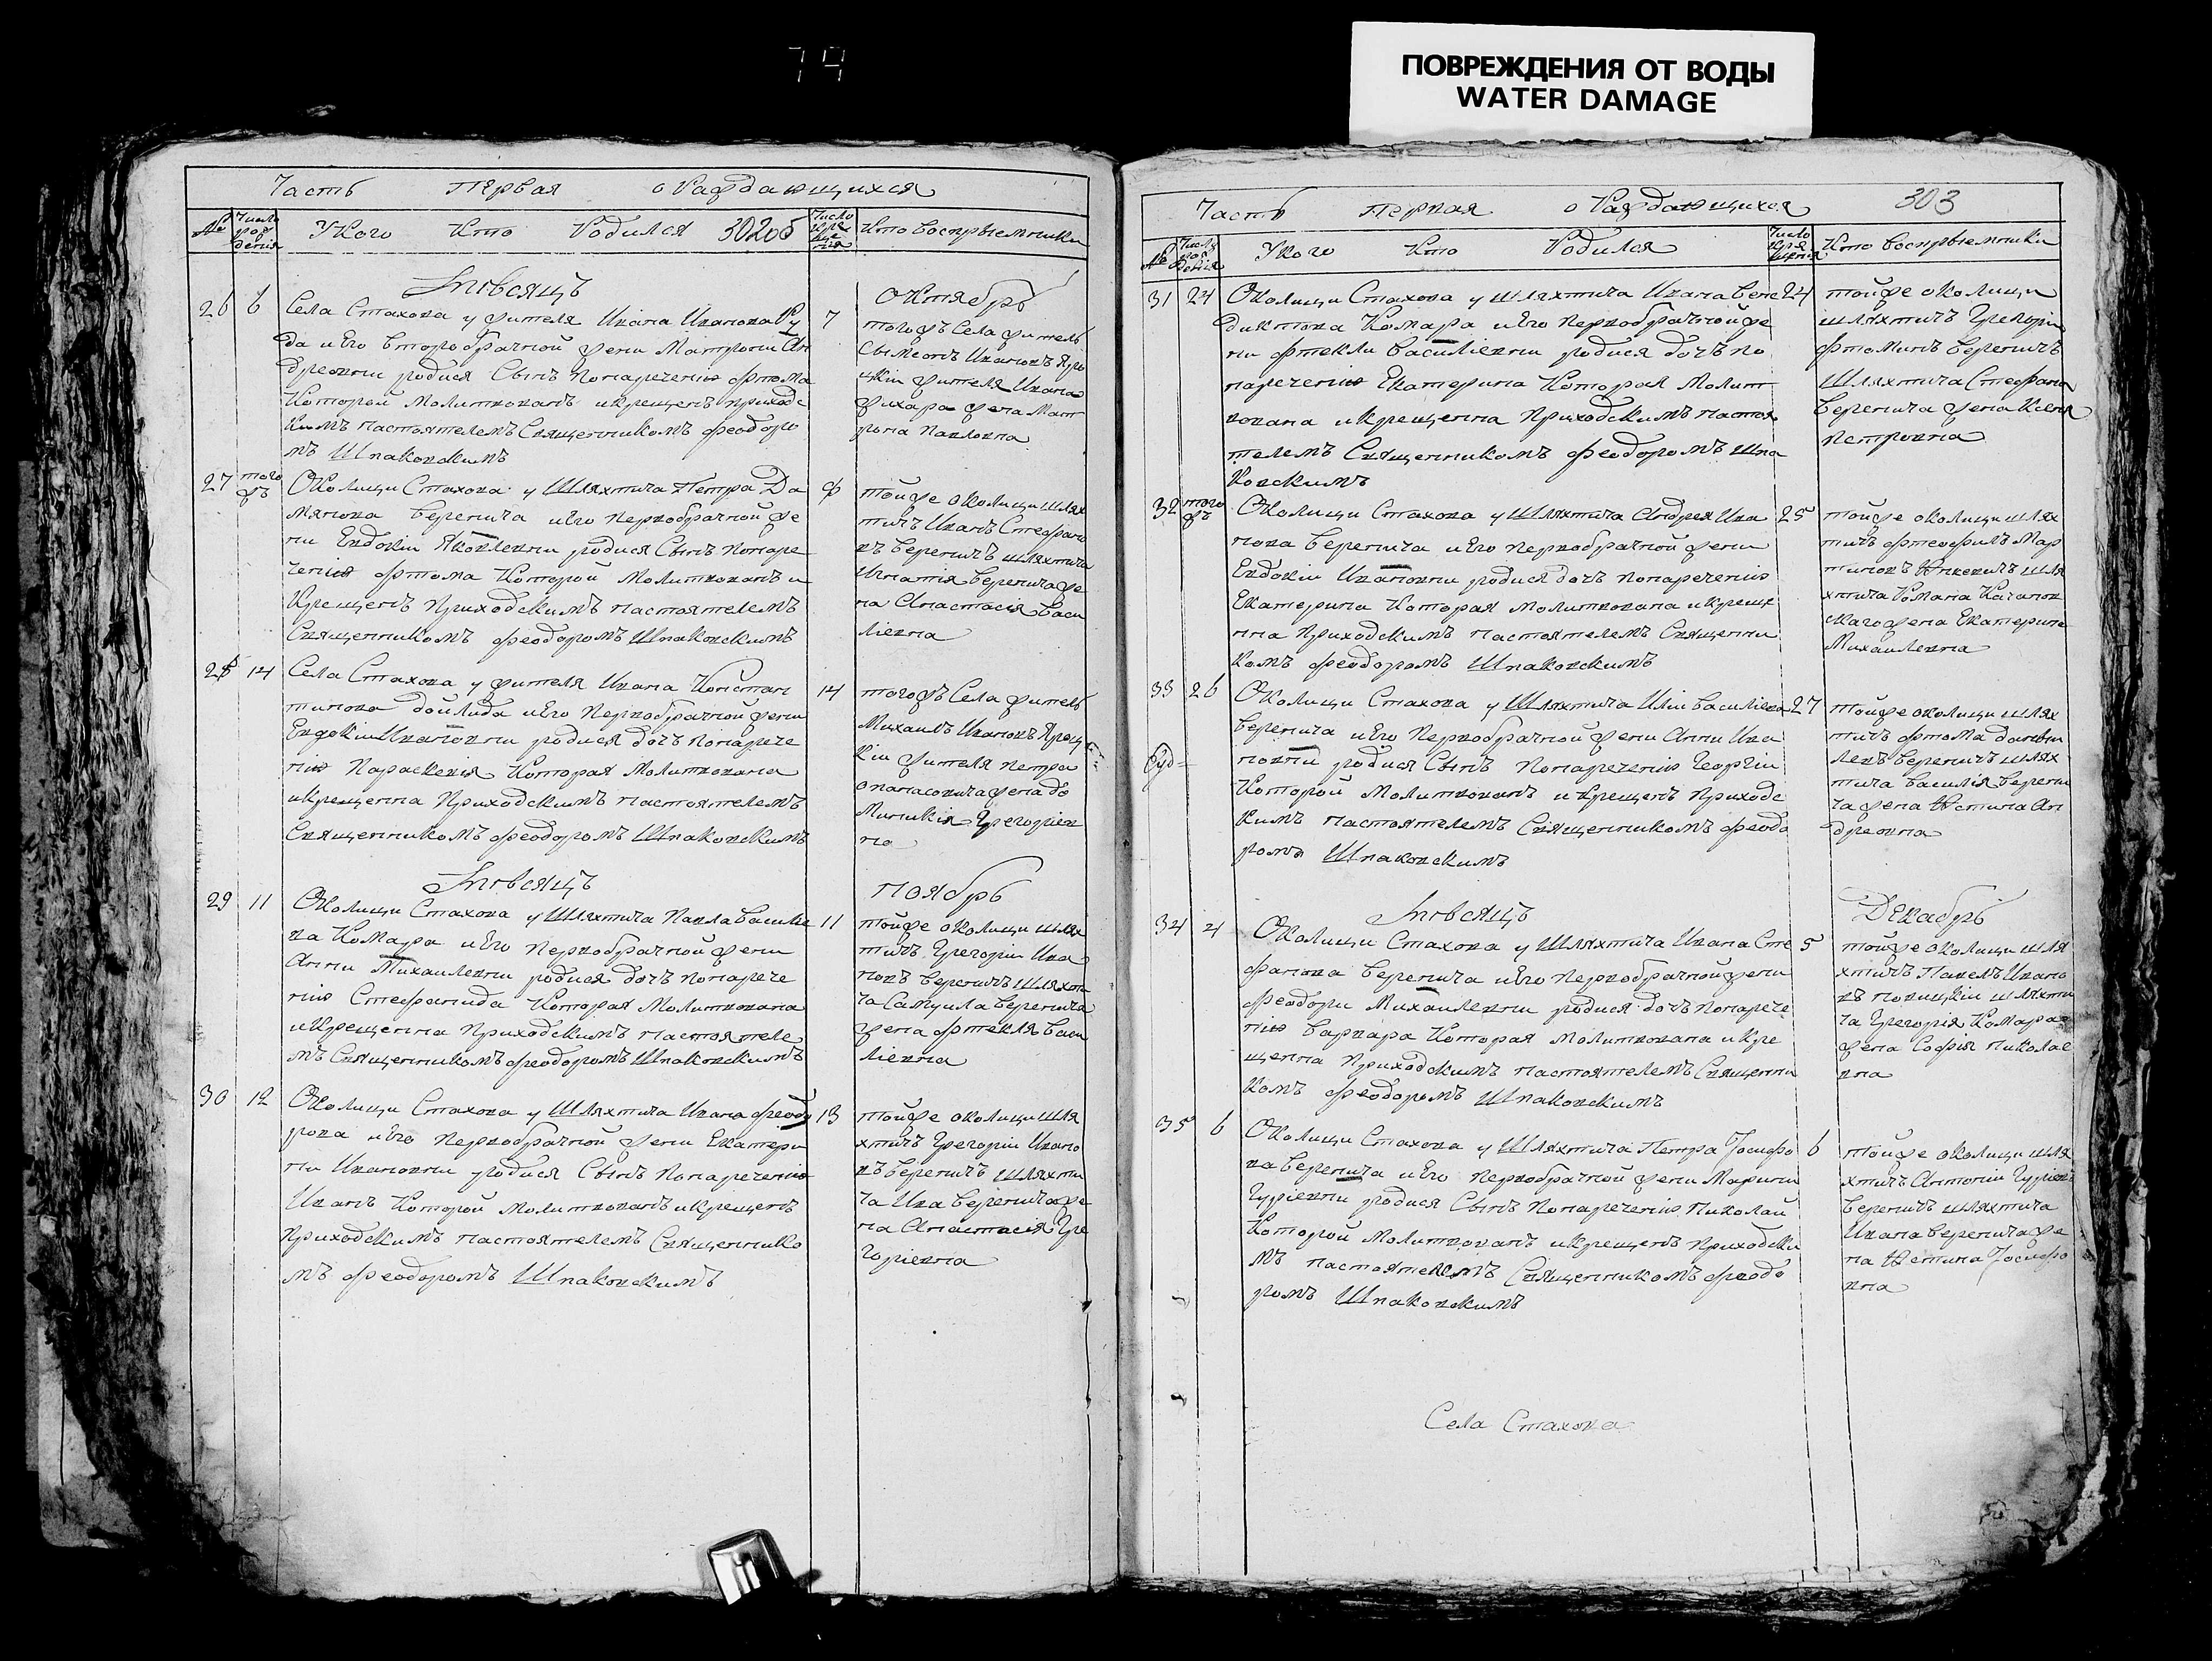 74
ПОВРЕЖДЕНИЯ ОТ ВОДЫ
WATER DAMAGE
Часть первая о Раждающихся
№ Число рождения У Кого Кто Родился 302об Число крещения Кто Восприемники
Мѣсяцъ Октябрь
26 6 7
Села Стахова у жителя Ивана Иванова Ру
да и Его второбрачной жени Матроны Ан
дреовни родися Сынъ понареченію Фтома
Которой молитвованъ и крещенъ приходс
кимъ настоятелемъ Священникомъ Феодоро
мъ Шпаковскимъ
того жъ Села житель
Сымеонъ Ивановъ Яро
цкіи жителя Ивана
жихара жена Мат
рона Павловна
27 того жъ ф
Околици Стахова у Шляхтича Петра Да
мянова Веренича и Его первобрачной же
ни Евдокіи Яковлевни родися Сынъ понаре
ченія Фтома Которой Молитвованъ и
Крещенъ Приходскимъ настоятелемъ
Священникомъ Феодоромъ Шпаковскимъ
тойже околици шлях
тичъ Иванъ Стефано
въ Вереничъ шляхтича
Игнатія Веренича же
на Анастасія Васи
ліевна
28 14 14
Села Стахова у жителя Ивана Констан
тинова Дойлида и Его Первобрачной жени
Евдокіи Ивановни родися дочъ понарече
нію Параскевія Которая Молитвована
и крещенна Приходскимъ настоятелемъ
Священникомъ Феодоромъ Шпаковскимъ
того жъ Села житель
Михаилъ Ивановъ Яроц
кіи жителя Петра
опанасовича жена до
Миникія Грегоріев
на
Мѣсяцъ Ноябрь
29 11 11
Околици Стахова у Шляхтича Павла Василіе
ва Комара и Его Первобрачной жени
Анни Михаилевни родися дочъ понарече
нію Стефанида Которая Молитвована
и Крещенна Приходскимъ настоятеле
мъ Священникомъ Феодоромъ Шпаковскимъ
тойже околици шлях
тичъ Грегоріи Ива
новъ Вереничъ Шляхти
ча Самуила Веренича
жена Фтекля Васи
ліевна
30 12 13
Околици Стахова у Шляхтича Ивана Феодо
рова и Его Первобрачной жени Екатери
ни Ивановни родися Сынъ Понареченію
Иванъ Которой молитвованъ и крещенъ
Приходскимъ настоятелемъ Священнико
мъ Феодоромъ Шпаковскимъ
тойже околици шля
хтичъ Грегоріи Ивано
въ Вереничъ Шляхти
ча Ива Веренича же
на Анастасія Гре
горіевна
Часть первая о Раждающихся 303
№ Числа рождения У Кого Кто Родился Число крещения Кто Восприемники
31 24 24
Околици Стахова у шляхтича Ивана Вене
диктова Комара и Его первобрачной же
ни Фтекли Василіевни родися дочъ по
нареченію Екатерина Которая Молит
вована и крещенна Приходскимъ настоя
телемъ Священникомъ Феодоромъ Шпа
ковскимъ
тойже околици
шляхтичъ Грегоріи
Фтоминъ Вереничъ
Шляхтича Стефана
Веренича жена Ксеня
Петровна
32 того жъ 25
Околици Стахова у Шляхтича Андрея Ива
нова Веренича и Его первобрачной жени
Евдокіи Ивановни родися дочъ понареченію
Екатерина Которая молитвована и креще
нна приходскимъ настоятелемъ Священни
комъ Феодоромъ Шпаковскимъ
тойже околици шлях
тичъ Фтеофилъ Мар
тиновъ шля
хтича Романа Качанов
скаго жена Екатерина
Михаилевна
33 26 27
Околици Стахова у Шляхтича Иліи Василіева
Веренича и Его Первобрачной жени Анни Ива
новни родися Сынъ Понареченію Георгіи
Которой Молитвованъ и крещенъ приходс
кимъ настоятелемъ Священникомъ Феодо
ромъ Шпаковскимъ
тойже околици шлях
тичъ Фтома Даныи
левъ Вереничъ шлях
тича Василія Верени
ча жена Устина Ан
дреовна
Мѣсяцъ Декабрь
34 4 5
Околици Стахова у Шляхтича Ивана Сте
фанова Веренича и Его первобрачной жени
Феодори Михаилевни родися дочъ понарече
нію Варвара Которая молитвована и кре
щенна Приходскимъ настоятелемъ Священни
комъ Феодоромъ Шпаковскимъ
тойже околици шля
хтичъ Павелъ Ивано
въ шляхти
ча Грегорія Комара
жена Софія Николае
вна
35 6 6
Околици Стахова у Шляхтича Петра Іосифо
ва Веренича и Его первобрачной жени Марини
Гуріевни родися Сынъ Понареченію Николай
Которой молитвованъ и крещенъ приходски
мъ настоятелемъ Священникомъ Феодо
ромъ Шпаковскимъ
тойже околици шля
хтичъ Антоніи Гуріевъ
Вереничъ шляхтича
Ивана Веренича же
на Устина Іосифо
вна
Села Стахова